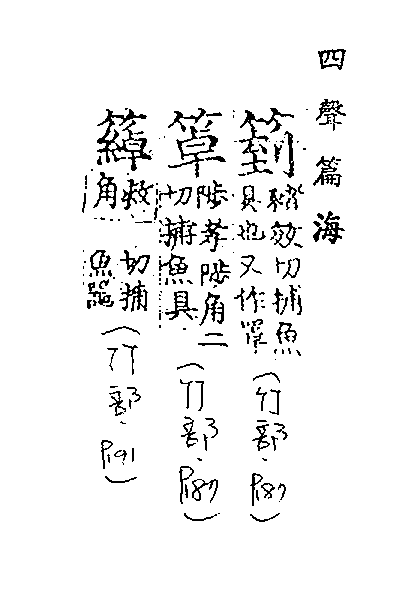 四聲篇海
箌 豬效切捕魚
具也又作罩
(竹部·P187)
䈇 陟孝陟角二
切捕魚具
(竹部·P187)
敕角
切捕
魚器
(竹部·P191)